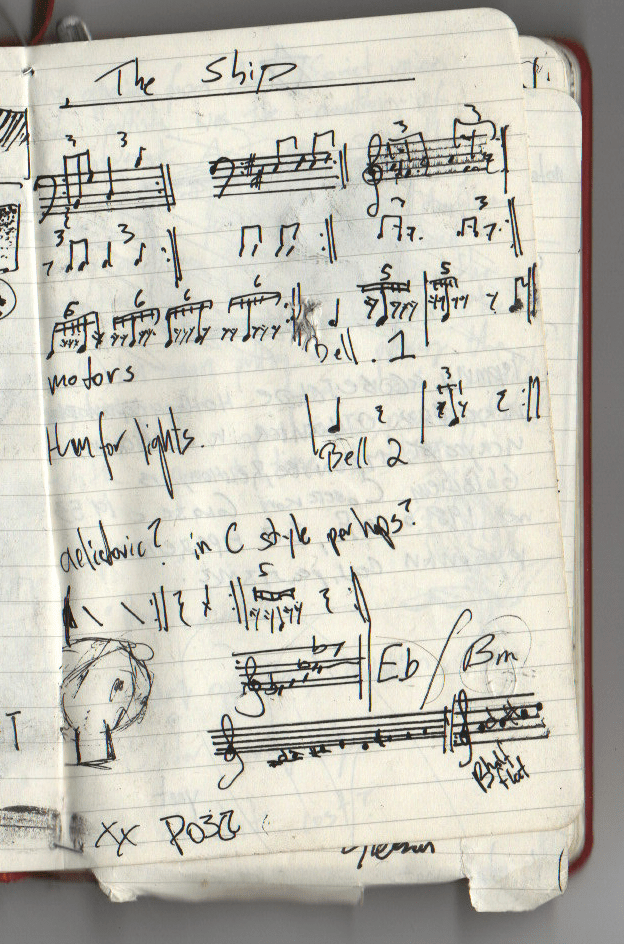 The Ship
3 3
3 3
3 3
3 3
6 6 6 6
5 5
Bell . 1
motors
Hum for lights.
3
Bell 2
aeliotoric? in C style perhaps?
5
Eb / Bm
B half flat
XX